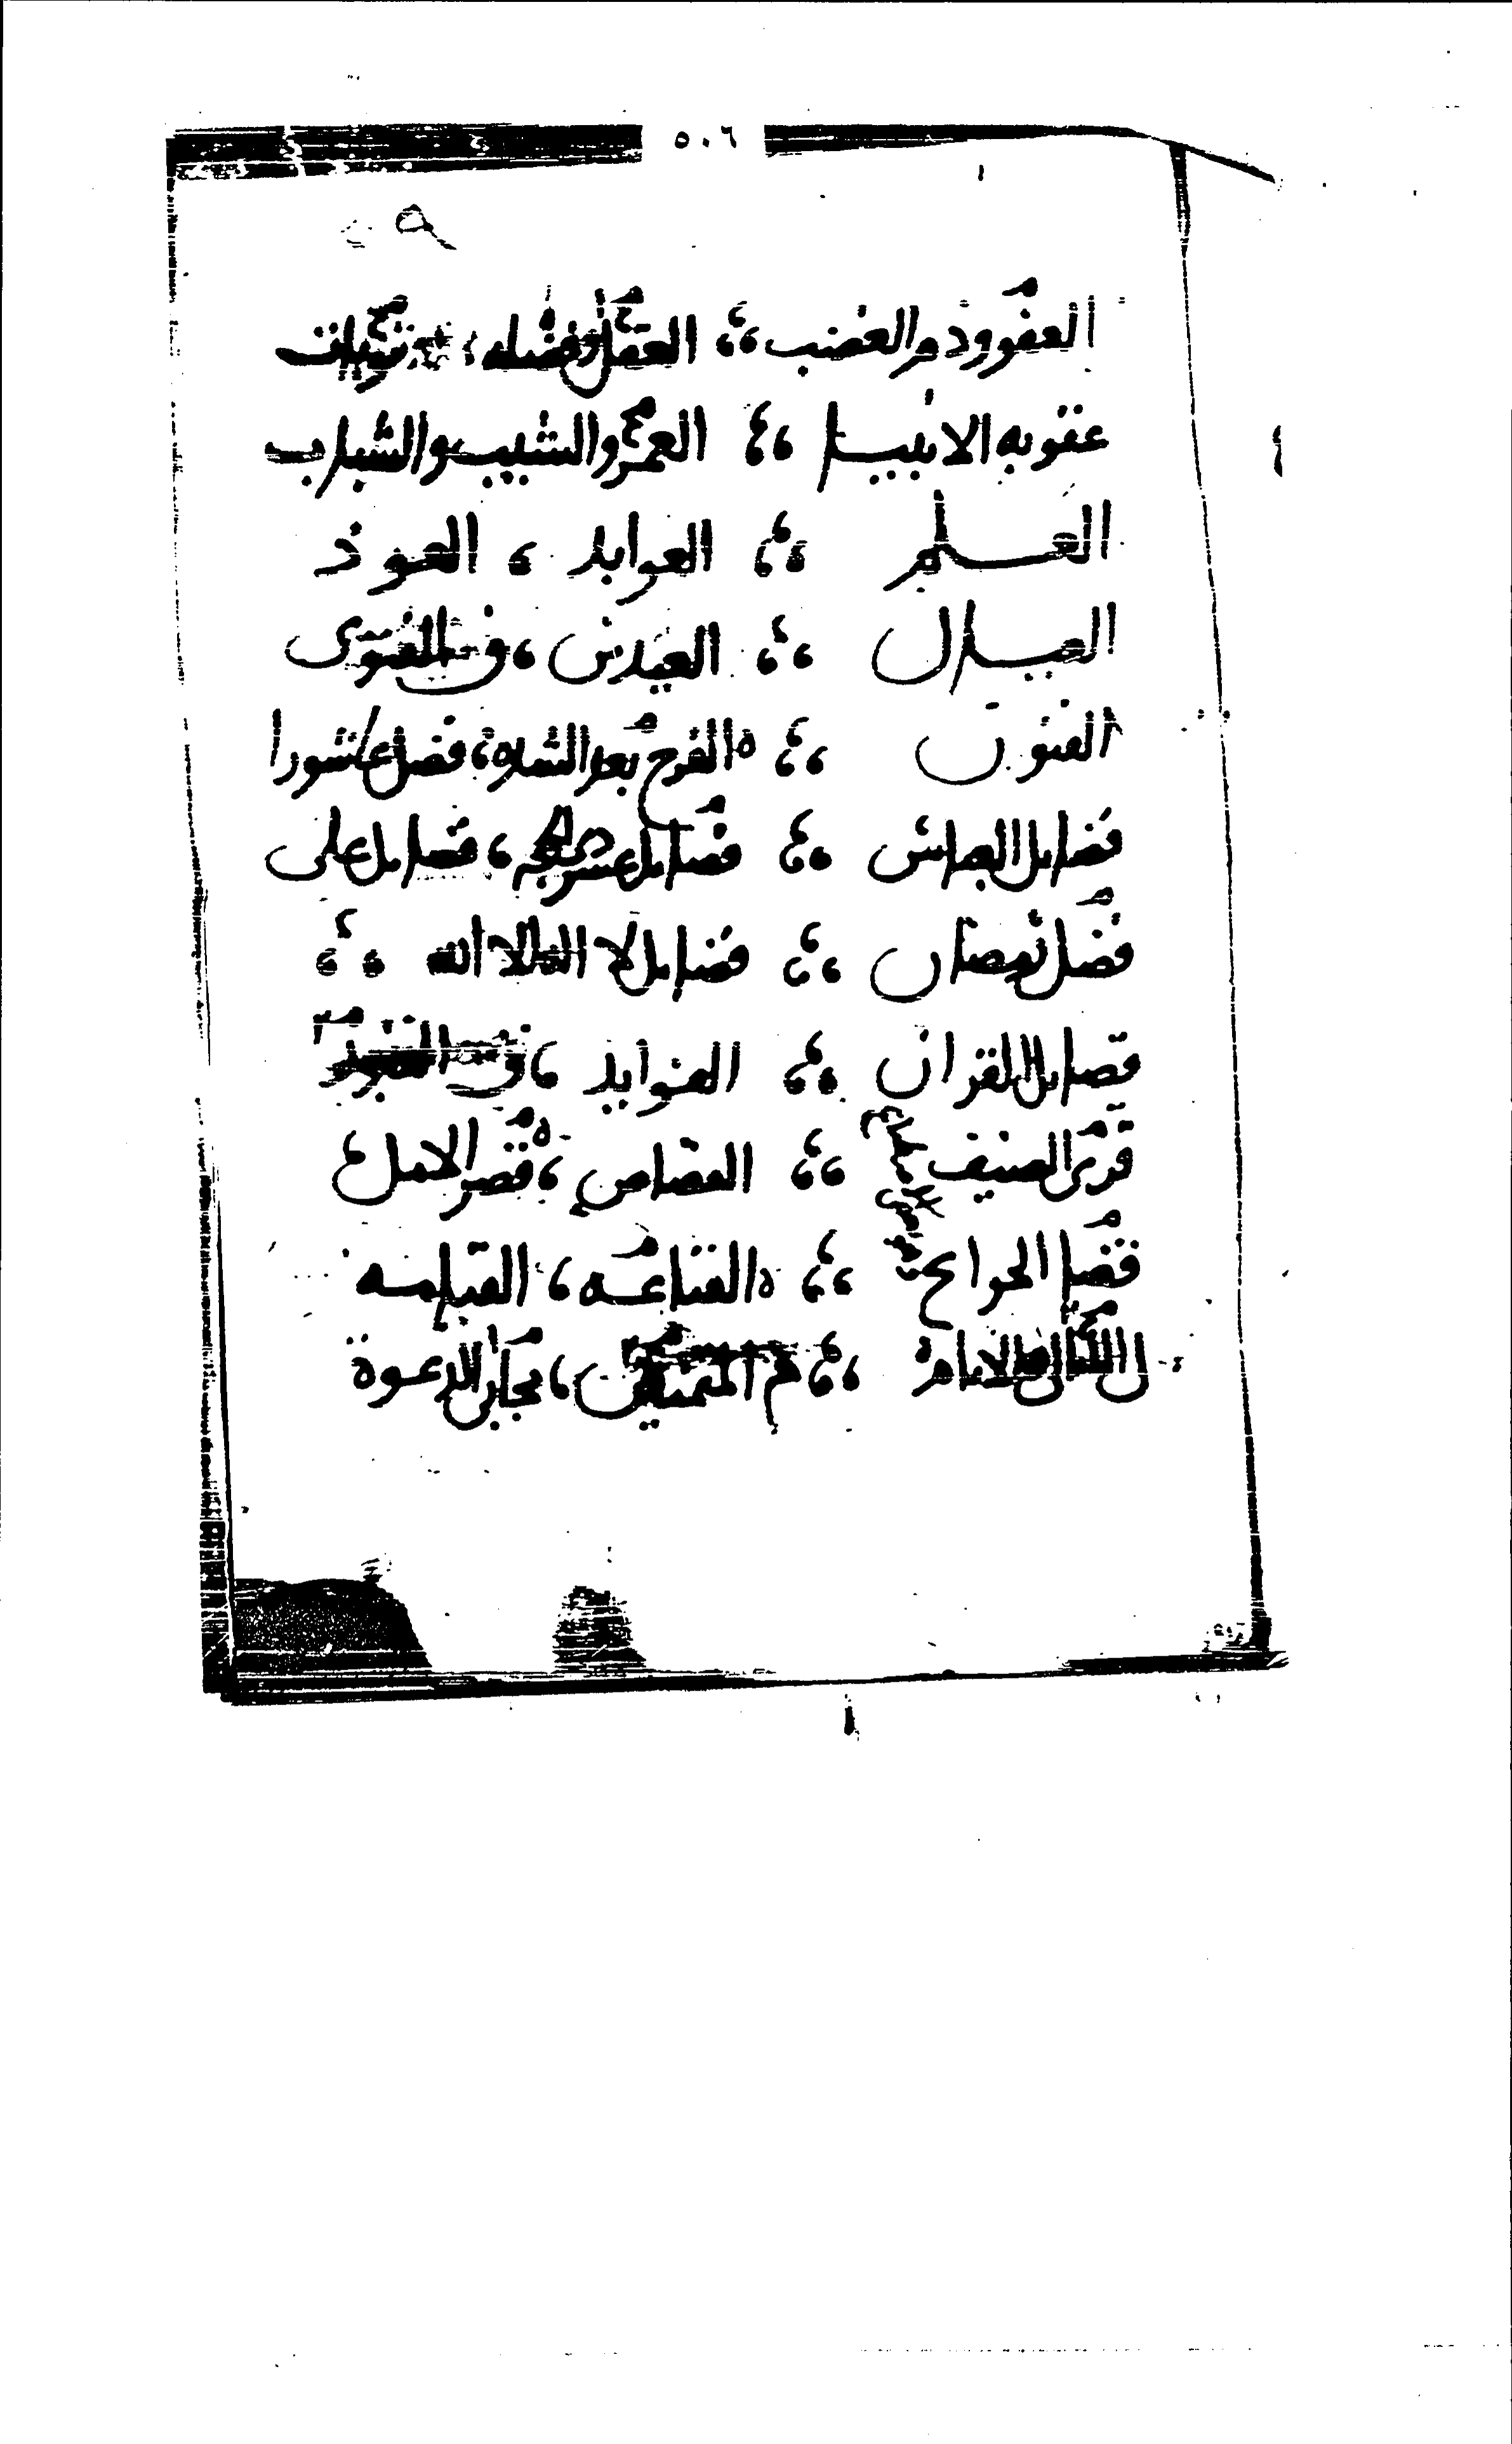 ٥٠٦
العفو وذم الغضب ؛ العقل وفضله ؛
عقوبه الانبيا ؛ العمر والشيب والشباب
العلم ؛ العوابد ، العوذ
العيال ؛ العيدين ،
الفنون ؛ الفرج بعد الشده ؛ فضل عاشورا
فضايل العباس ؛ فضايل عشر الحجه ، فضايل على
فضل رمضان ؛ فضايل لا اله الا الله ؛
فضايل القران ؛ الفوايد ،
قرى الضيف ؛ القصاص ، قصر الامل
قضا الحوايج ؛ القناعه ، القيامه
؛ ذم ، مجابى الدعوة